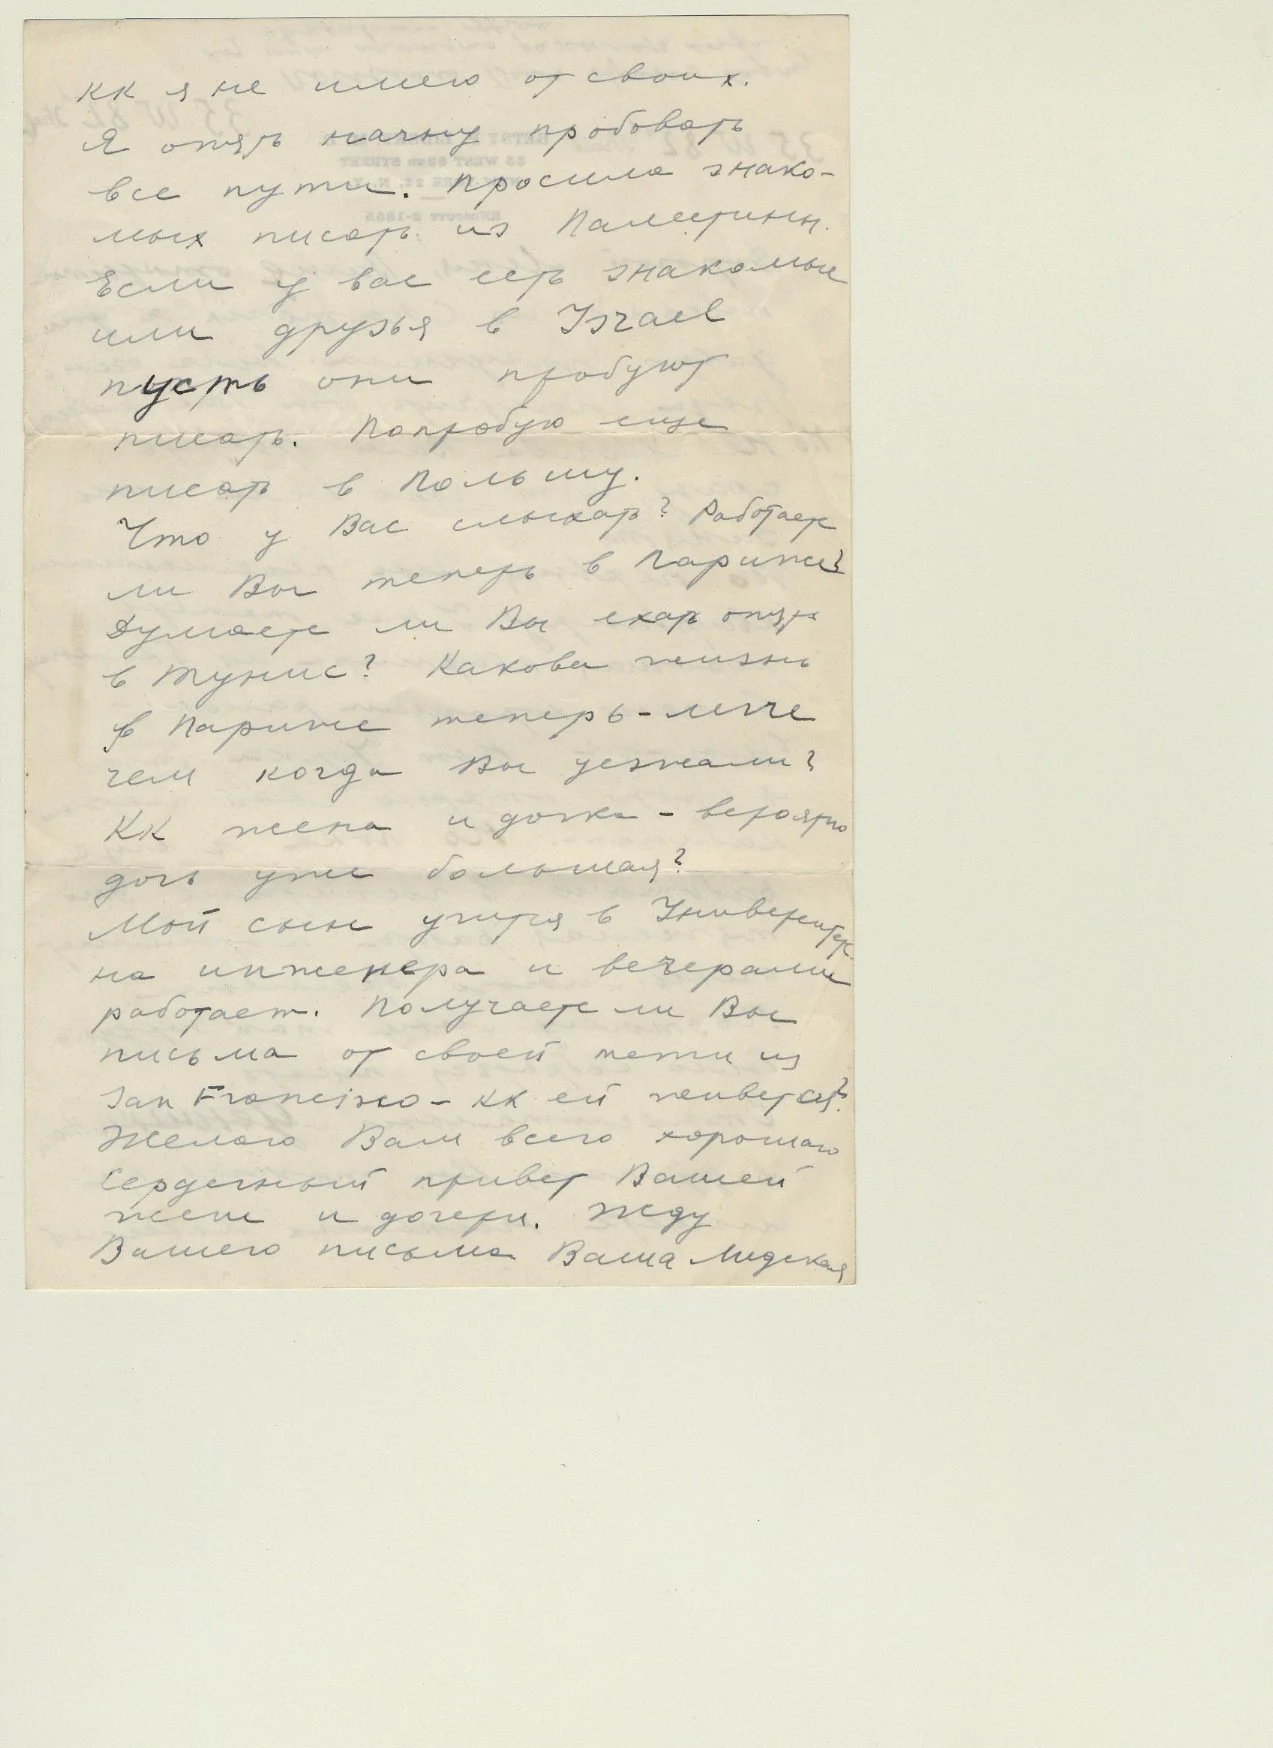 кк я не имею от своих.
Я опять начну пробовать
все пути. Просила знако-
мых писать из Палестины.
Если у вас есть знакомые
или друзья в Israel
пусть они пробуют
писать. Попробую еще
писать в Польшу.
Что у Вас слыхать? Работаете
ли Вы теперь в Париже?
Думаете ли Вы ехать опять
в Тунис? Какова жизнь
в Париже теперь - легче
чем когда Вы уезжали?
КК жена и дочка - вероятно
дочь уже большая?
Мой сын учится в Университете
на инженера и вечерами
работает. Получаете ли Вы
письма от своей тети из
San Francisco - кк ей живется?
Желаю Вам всего хорошаго
Сердечный привет Вашей
жене и дочери. Жду
Вашего письма Ваша Лидская